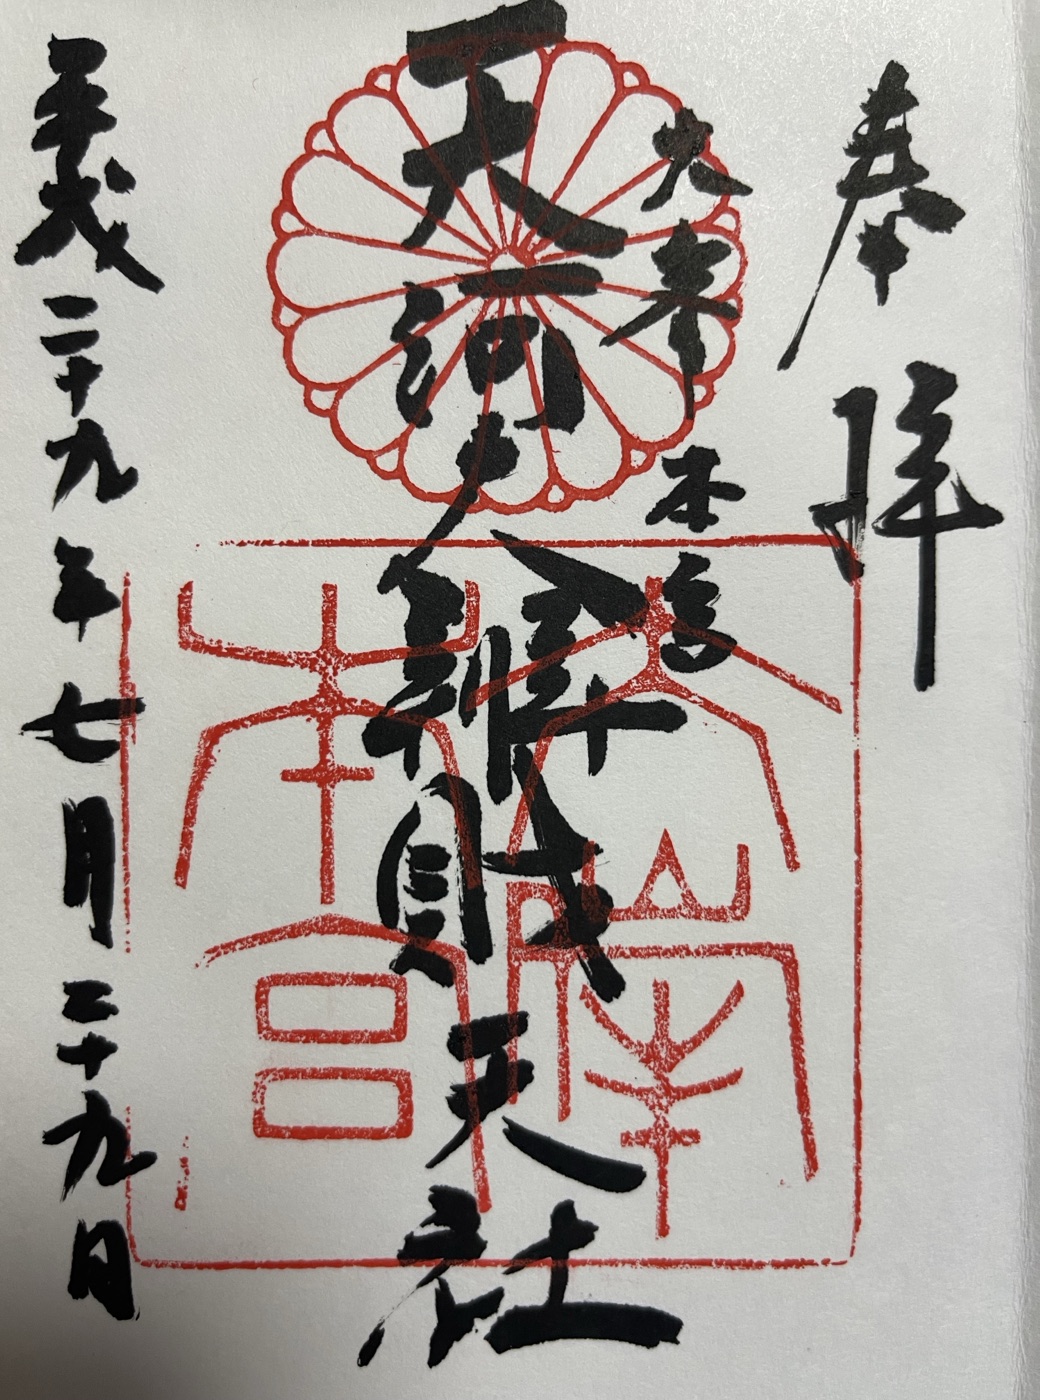 奉拝
大峯本宮
天河大辨財天社
平成二十九年七月二十九日
大峯本宮